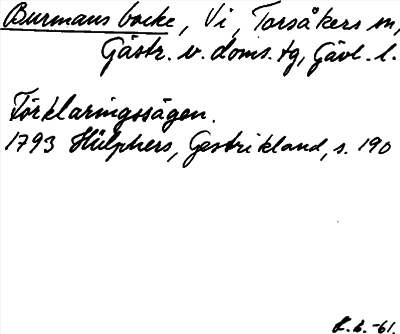 Burmans backe, Vi, Torsåkers sn,
Gästr. v. doms. tg, Gävl. l.
Förklaringssägen.
1793 Hülphers, Gestrikland, s. 190
L. L. -61.